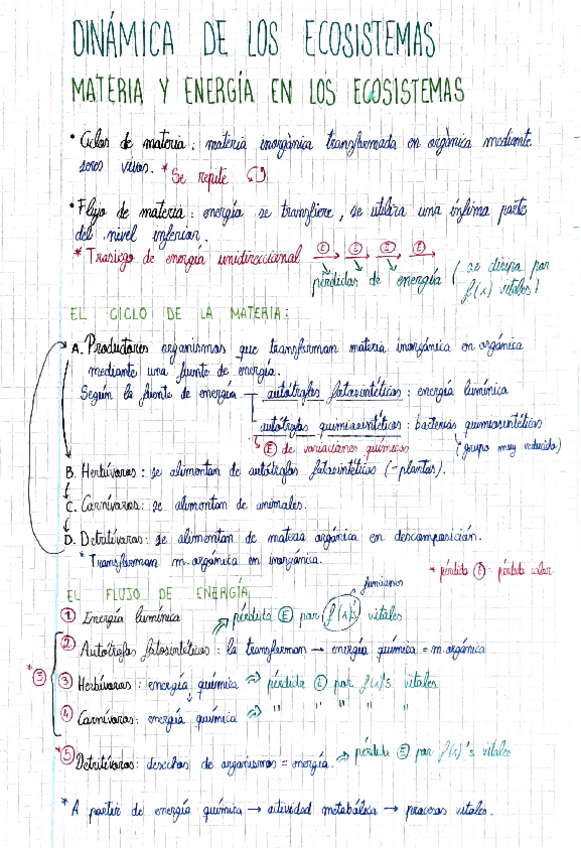 DINÁMICA DE LOS ECOSISTEMAS
MATERIA Y ENERGÍA EN LOS ECOSISTEMAS
• Ciclos de materia: materia inorgánica transformada en orgánica mediante
seres vivos. * Se repite
• Flujo de materia: energía se transfiere, se utiliza una ínfima parte
del nivel inferior.
* Trasiego de energía unidireccional E E E E
pérdidas de energía (se disipa por
f(x) vitales)
EL CICLO DE LA MATERIA:
A. Productores organismos que transforman materia inorgánica en orgánica
mediante una fuente de energía.
Según la fuente de energía autótrofos fotosintéticos: energía lumínica
autótrofos quimiosintéticos: bacterias quimiosintéticas
E de variaciones químicas (grupo muy reducido)
B. Herbívoros: se alimentan de autótrofos fotosintéticos (-plantas).
C. Carnívoros: se alimentan de animales.
D. Detritívoros: se alimentan de materia orgánica en descomposición.
* Transforman m. orgánica en inorgánica.
* pérdida E = pérdida calor
EL FLUJO DE ENERGÍA
funciones
1 Energía lumínica ⇒ pérdida E por f(x)'s vitales
2 Autótrofos fotosintéticos: la transforman → energía química = m. orgánica
*3
3 Herbívoros: energía química ⇒ pérdida E por f(x)'s vitales
4 Carnívoros: energía química ⇒ " " " " "
*5 Detritívoros: desechos de organismos = energía. ⇒ pérdida E por f(x)'s vitales
* A partir de energía química → actividad metabólica → procesos vitales.